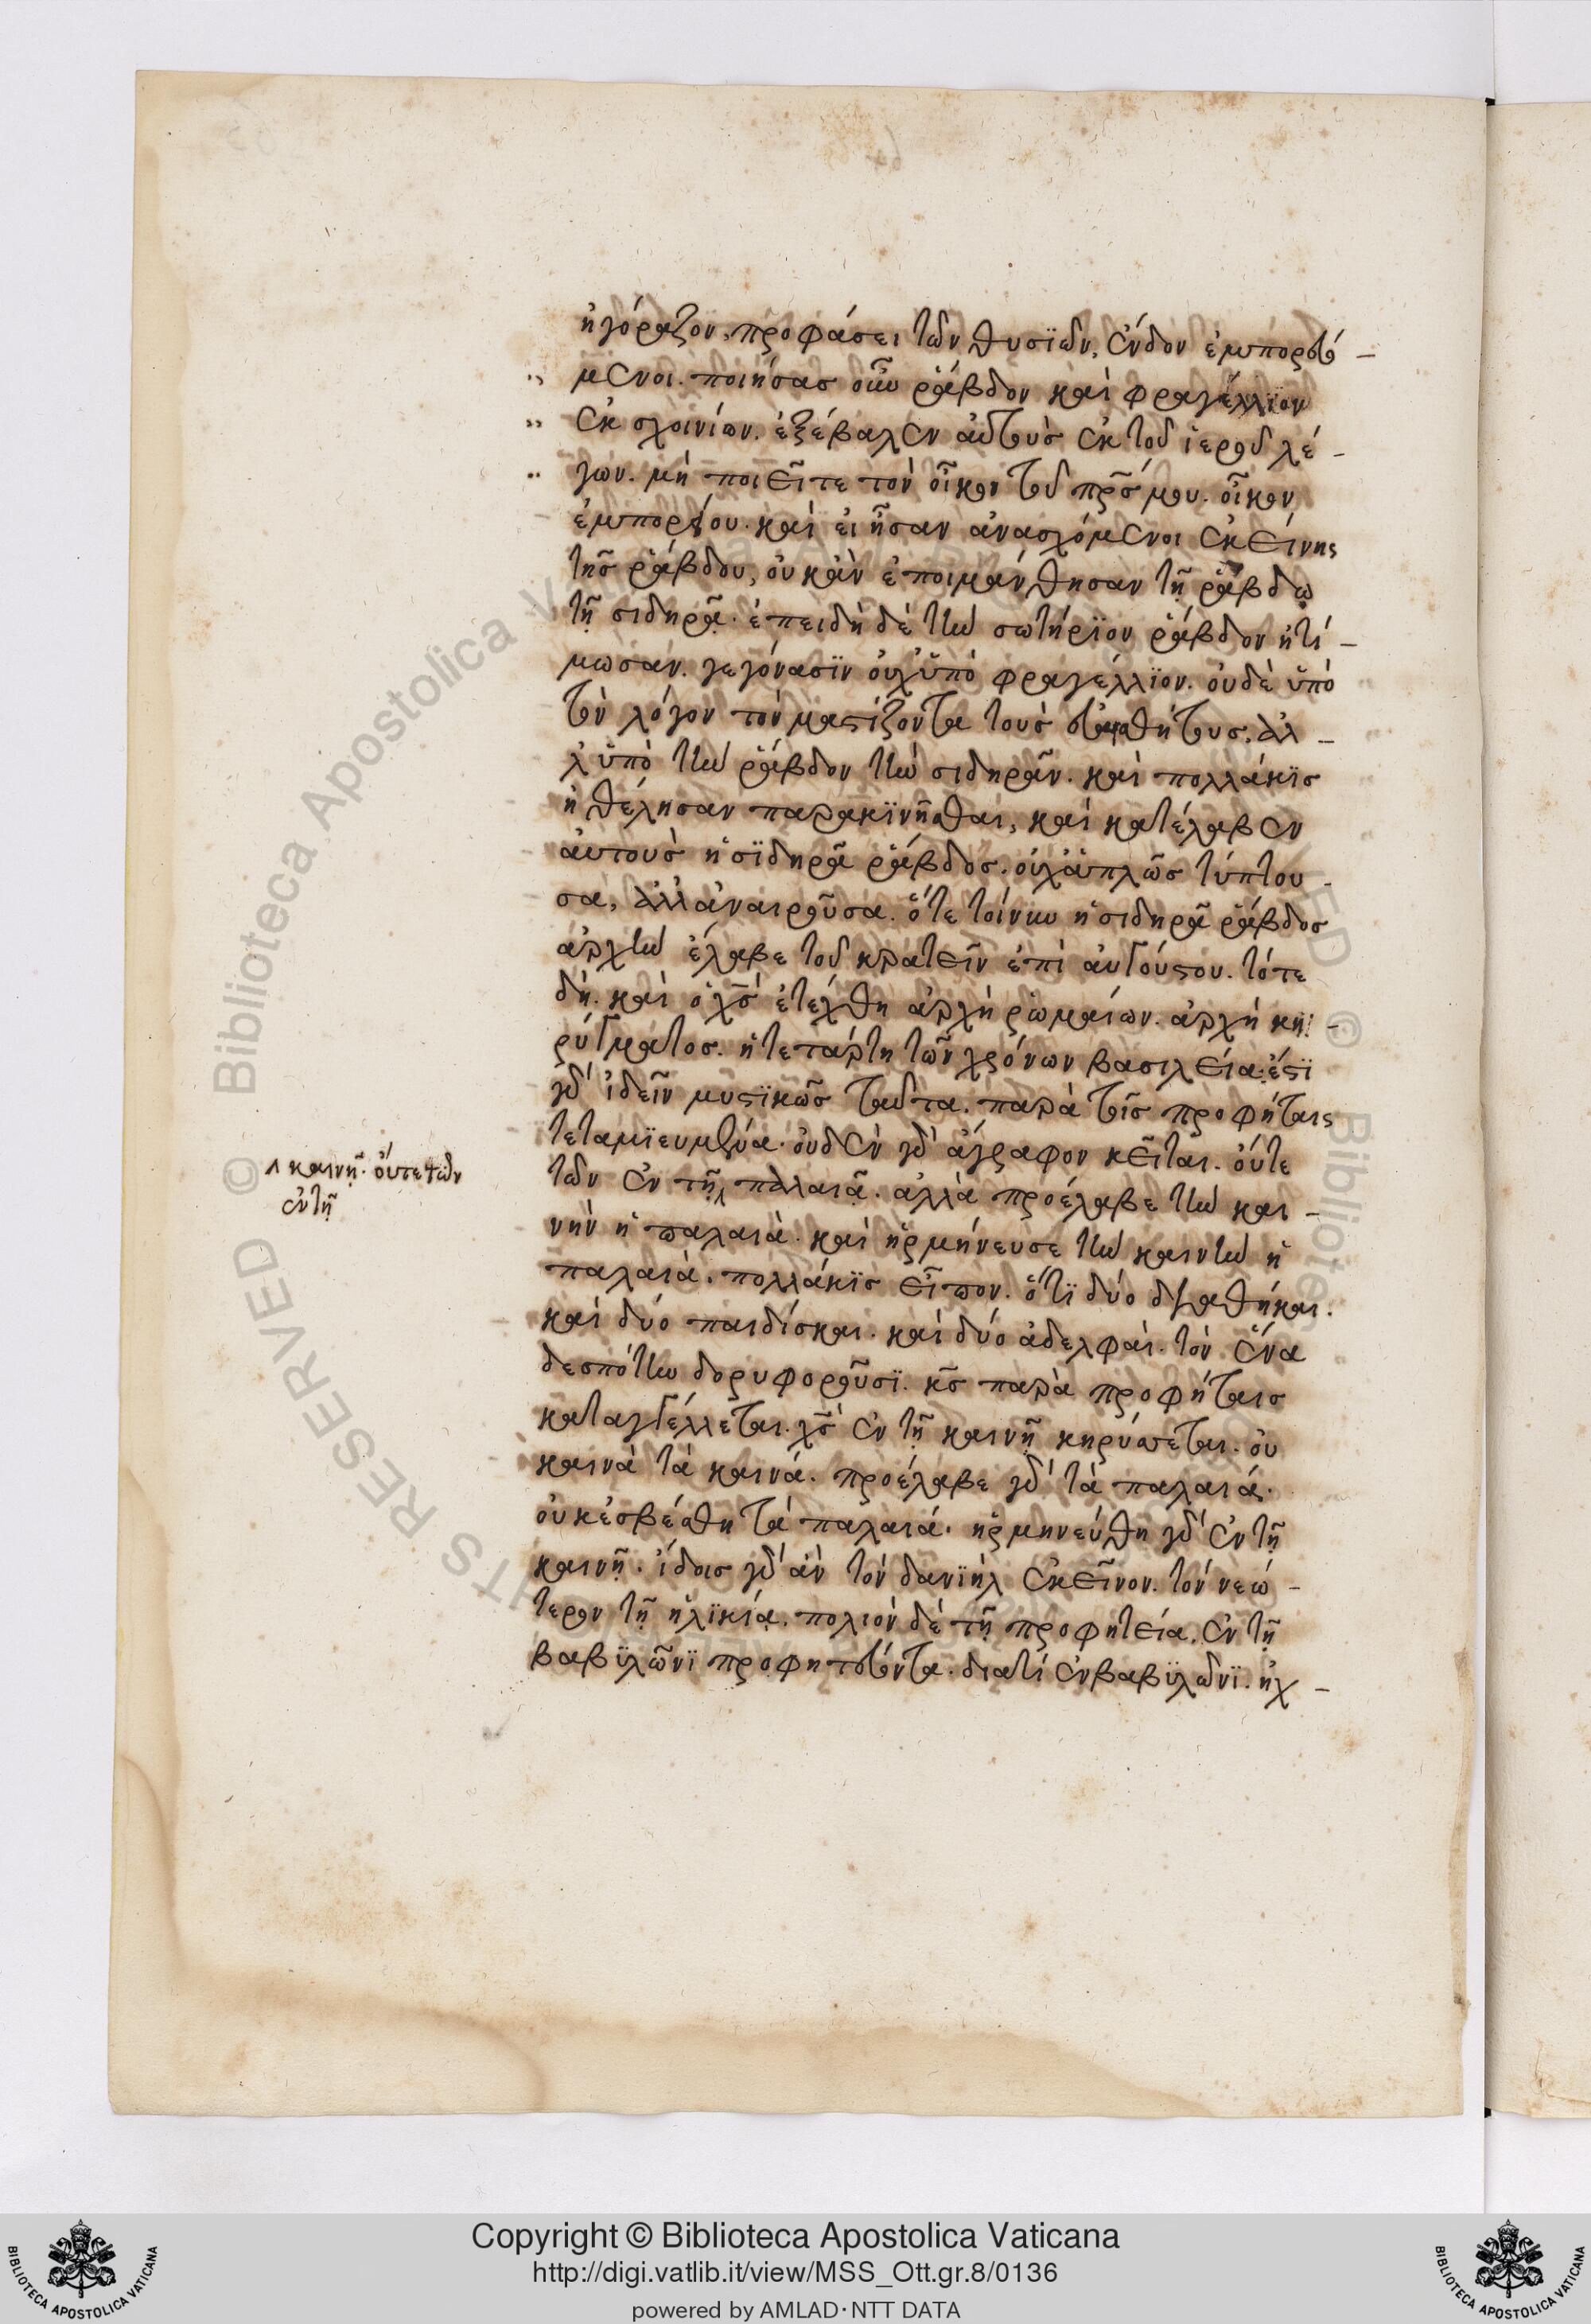 ἠγόραζον, προφάσει τῶν θυσϊῶν, ἔνδον ἐμπορευό-
μενοι. ποιήσας οὖν ῥάβδον καὶ φραγέλλϊον
ἐκ σχοινίων. ἐξέβαλεν αὐτοὺς ἐκ τοῦ ἱεροῦ λέ-
γων. μὴ ποιεῖτε τὸν οἶκον τοῦ πρς μου. οἶκον
ἐμπορίου. καὶ εἰ ἦσαν ἀνασχόμενοι ἐκείνης
τῆς ῥάβδου, οὐκ ἂν ἐποιμάνθησαν τῇ ῥάβδῳ
τῇ σιδηρᾷ. ἐπειδὴ δὲ τὴν σωτήρϊον ῥάβδον ἠτί-
μωσαν. γεγόνασϊν οὐχ ὑπὸ φραγέλλϊον. οὐδὲ ὑπὸ
τὸν λόγον τὸν μαστίζοντα τοὺς
λ ὑπὸ τὴν ῥάβδον τὴν σιδηρᾶν. καὶ πολλάκϊς
ἠθέλησαν παρακϊνῆσθαι, καὶ κατέλαβεν
αὐτοὺς ἡ σϊδηρᾶ ῥάβδος. οὐχ ἁπλῶς τύπτου-
σα, ἀλλ ἀναιροῦσα. ὅτε τοίνυν ἡ σιδηρᾶ ῥάβδος
ἀρχὴν ἔλαβε τοῦ κρατεῖν ἐπὶ αὐγούστου. τότε
δὴ. καὶ ὁ χς ἐτέχθη ἀρχὴ ῥωμαίων. ἀρχὴ κη-
ρύγματος. ἡ τετάρτη τῶν χρόνων βασιλεία. ἔστϊ
γὰρ ἰδεῖν μυστϊκῶς ταῦτα. παρὰ τοῖς προφήταις
τεταμϊευμένα. οὐδὲν γὰρ ἄγραφον κεῖται. οὔτε
τῶν ἐν τῇ παλαιᾷ. ἀλλὰ προέλαβε τὴν και-
νὴν ἡ παλαιὰ. καὶ ἡρμήνευσε τὴν καινὴν ἡ
παλαιὰ. πολλάκϊς εἶπον. ὅτϊ δύο διαθῆκαι.
καὶ δύο παιδίσκαι. καὶ δύο ἀδελφαὶ. τὸν ἕνα
δεσπότην δορυφοροῦσϊ. κς παρὰ προφήταις
καταγγέλλεται. χς ἐν τῇ καινῇ κηρύττεται. οὐ
καινὰ τὰ καινά. προέλαβε γὰρ τὰ παλαιά.
οὐκ ἐσβέσθη τὰ παλαιά. ἡρμηνεύθη γὰρ ἐν τῇ
καινῇ. ἴδοις γὰρ ἂν τὸν δανϊὴλ ἐκεῖνον. τὸν νεώ-
τερον τῇ ἡλϊκίᾳ. πολιὸν δὲ τῇ προφητεία. ἐν τῇ
βαβϋλῶνϊ προφητεύοντα. διατί ἐν βαβϋλῶνϊ. ἠχ-
καινῇ. οὔτε τῶν
ἐν τῇ
Copyright © Biblioteca Apostolica Vaticana
http://digi.vatlib.it/view/MSS_Ott.gr.8/0136
powered by AMLAD · NTT DATA
BIBLIOTECA APOSTOLICA VATICANA
BIBLIOTECA APOSTOLICA VATICANA